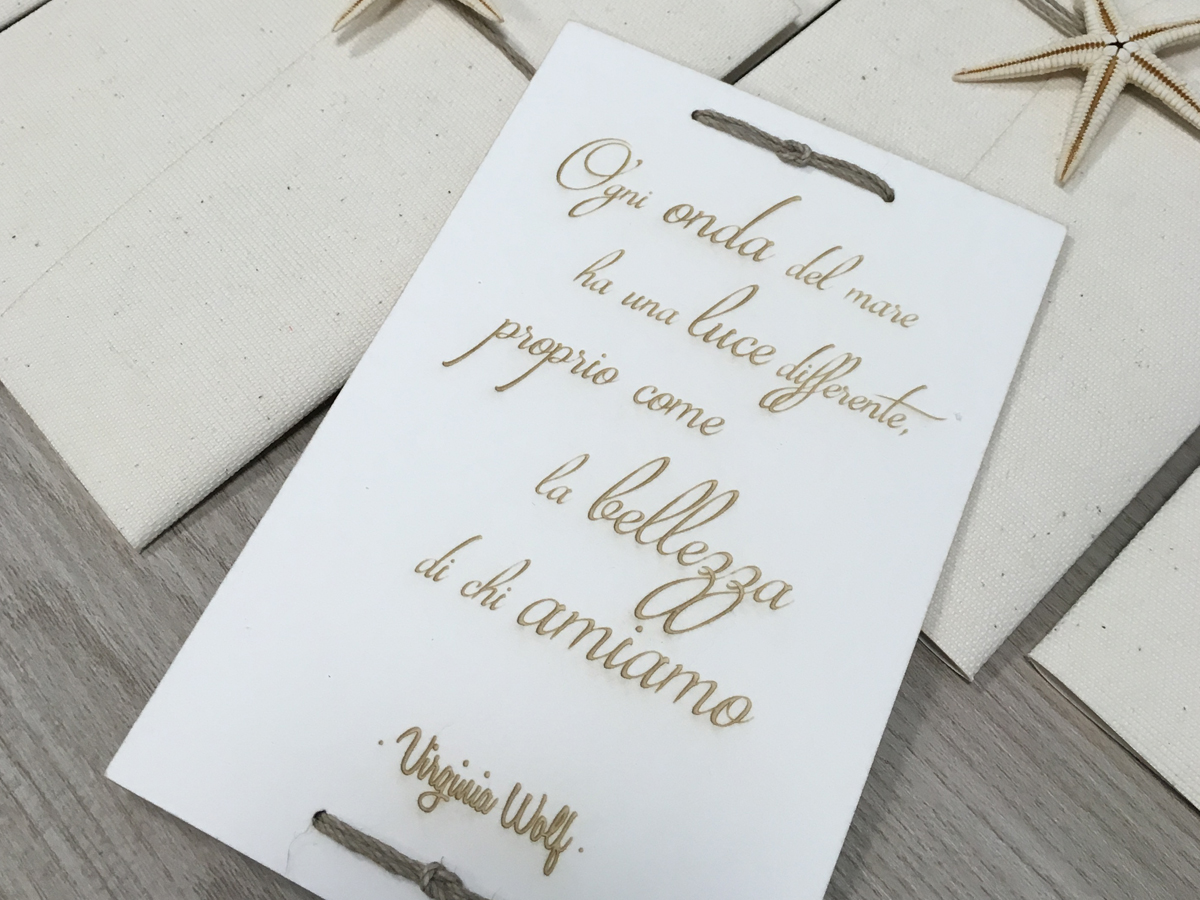 Ogni onda del mare
ha una luce differente,
proprio come
la bellezza
di chi amiamo
· Virginia Wolf ·